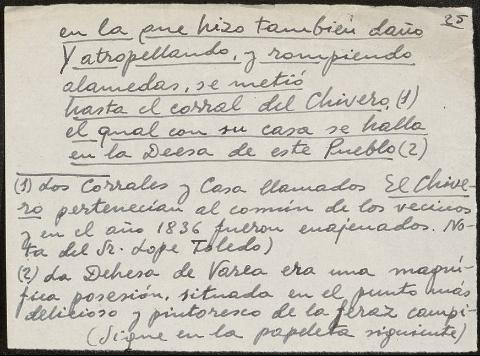 25
en la que hizo también daño
y atropellando, y rompiendo
alamedas, se metió
hasta el corral del Chivero, (1)
el qual con su casa se halla
en la Deesa de este Pueblo (2)
(1) Los Corrales y Casa llamados El Chive-
ro pertenecían al común de los vecinos
y en el año 1836 fueron enajenados. No-
ta del Sr. Lope Toledo)
(2) La Dehesa de Varea era una magní-
fica posesión, situada en el punto más
delicioso y pintoresco de la feraz campi-
(Sigue en la papeleta siguiente)